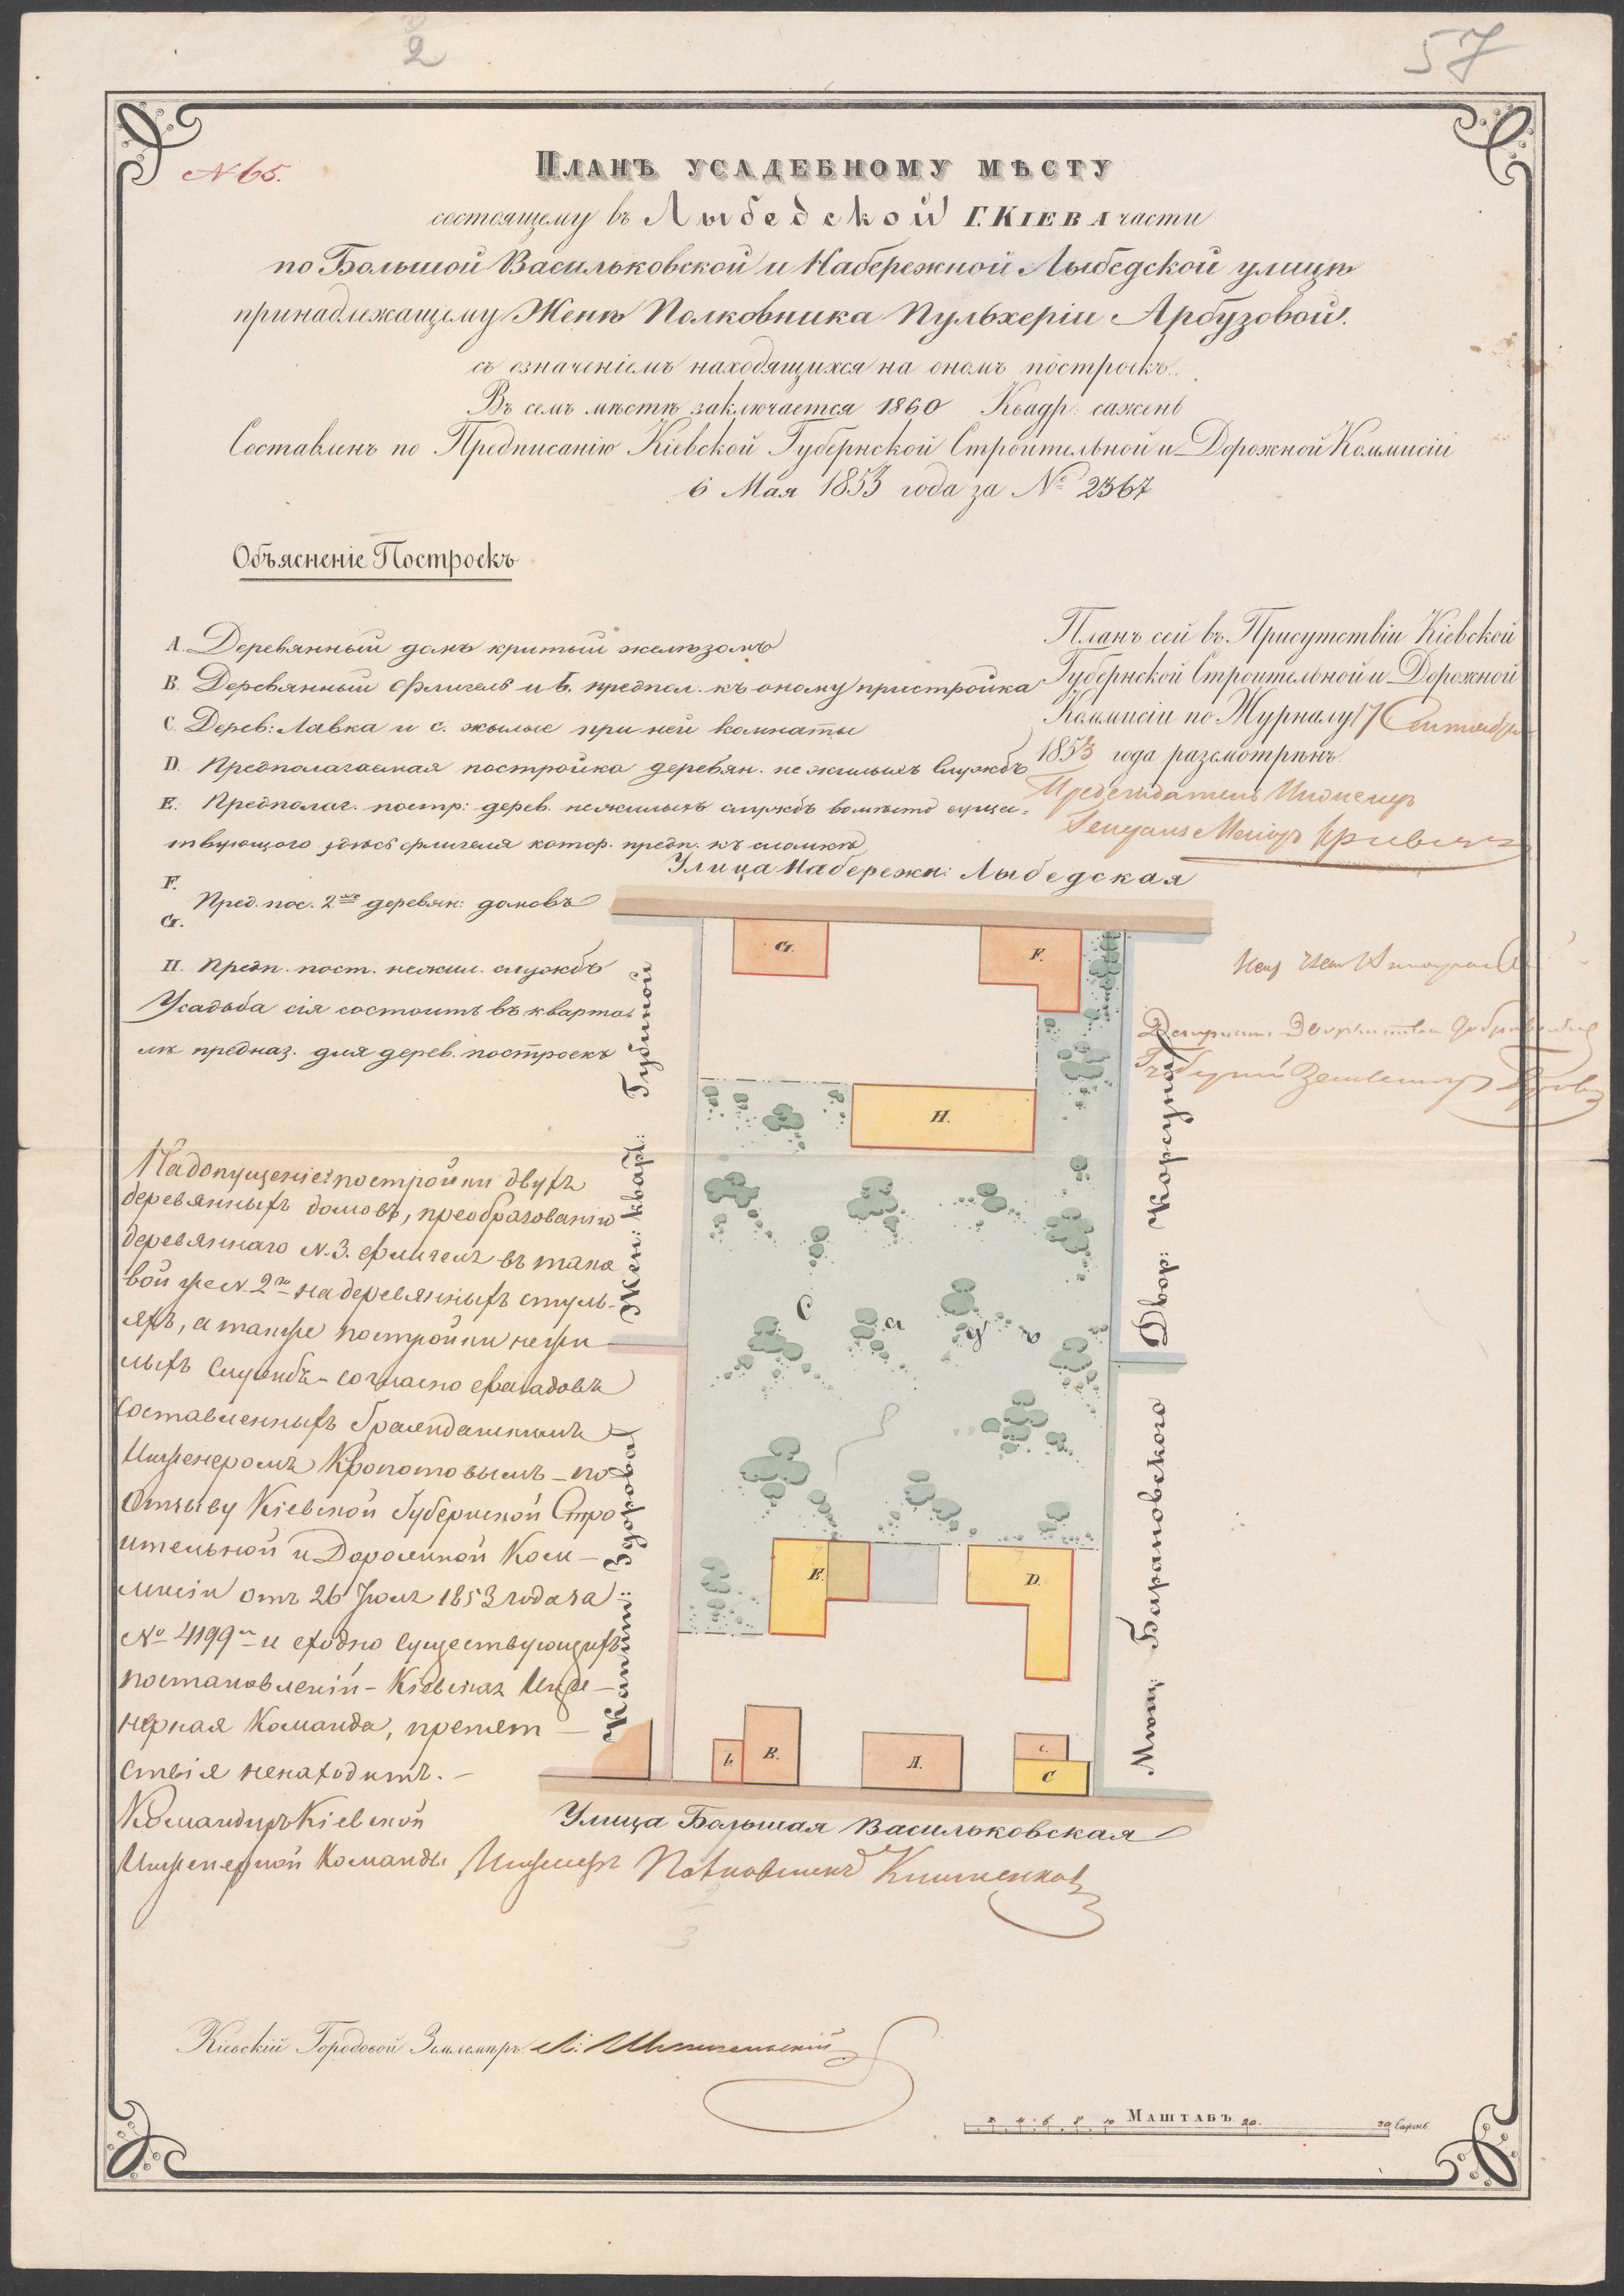 2
57
N 65.
Планъ усадебному мѣсту
состоящему въ Лыбедской Г. Кіева части
по Большой Васильковской и Набережной Лыбедской улицѣ
принадлежащему Женѣ Полковника Пульхеріи Арбузовой.
съ означеніемъ находящихся на ономъ построекъ.
Въ семъ мѣстѣ заключается 1860 Квадр: сажень
Составленъ по Предписанію Кіевской Губернской Строительной и Дорожной Коммисіи
6 Мая 1853 года за № 2367
Объясненіе Построекъ
A. Деревянный домъ критый желѣзомъ
B. Деревянный флигель и b. предпол. къ оному пристройка
C. Дерев: Лавка и с. жылые при ней комнаты
D. Предполагаемая постройка деревян. не жилыхъ Службъ
E. Предполаг. постр: дерев. нежилыхъ службъ вомѣсто суще-
твующого здѣсь флигеля котор. предп. къ сломкѣ
F.
Пред. пос. 2хъ деревян: домовъ
G.
H. Предп. пост. нежил. службъ
Усадьба сія состоитъ въ кварта
лѣ предназ. для дерев. построекъ
Планъ сей въ Присутствіи Кіевской
Губернской Строительной и Дорожной
Коммисіи по Журналу 17 Сентября
1853 года разсмотрѣнъ.
Председатель Инженеръ
Генералъ Маіоръ
Улица Набережн: Лыбедская
G.
F.
H.
Садъ
E.
D.
b.
B.
A.
c.
C
Жен: кварт: Губиной
Капит: Здоровой
Двор: Корсуна
Мѣщ: Барановского
Улица Большая Васильковская
На допущеніе постройки двухъ
деревянныхъ домовъ, преобразованію
деревяннаго N. 3. флигеля въ тако
вой же N. 2го на деревянныхъ стуль-
яхъ, а также постройки нежи
лыхъ Службъ - согласно фасадовъ
Составленныхъ Гражданскимъ
Инженеромъ Кропотовымъ - по
Отзыву Кіевской Губернской Стро
ительной и Дорожной Ком-
мисіи отъ 26 Іюля 1853 года за
№ 4199мъ и сходно существующихъ
постановленій - Кіевская Инже-
нерная Команда, препят-
ствія ненаходитъ. -
Командиръ Кіевской
Инженерной Команды, Инженеръ Полковникъ
2
3
Кіевскій Городовой Землемѣръ Л:
Маштабъ
2 4 6 8 10 20. 30 Сажень